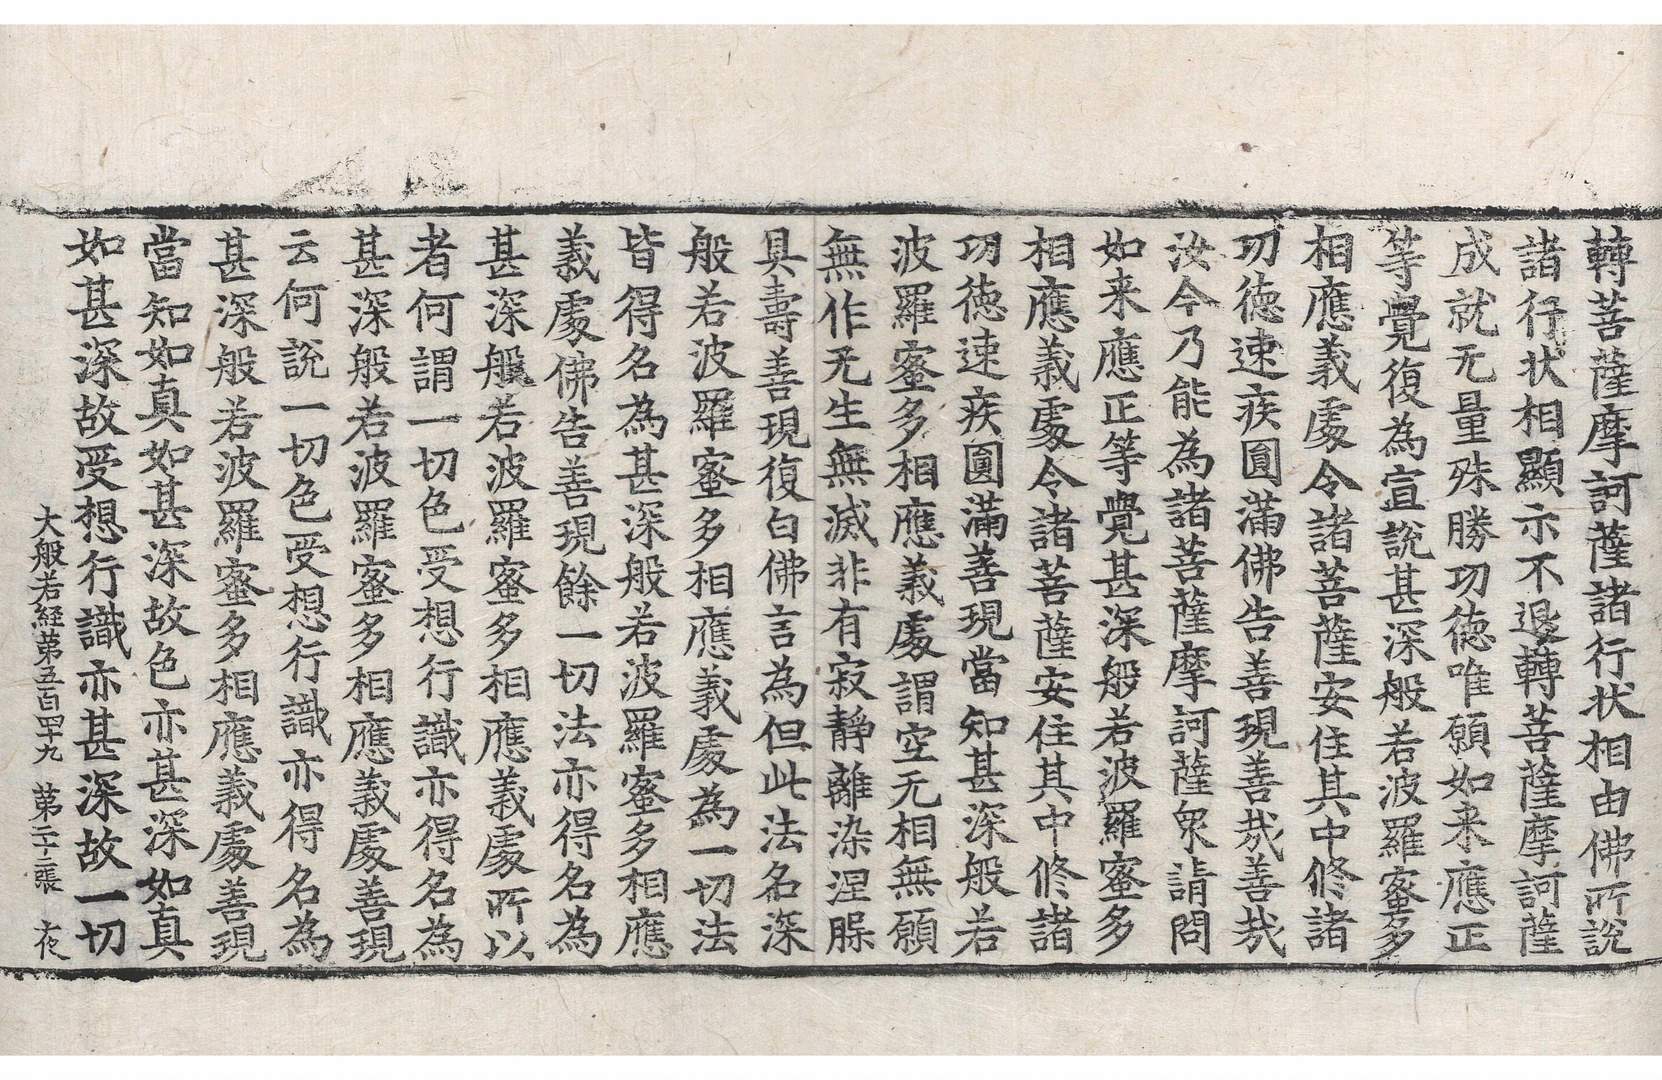 轉菩薩摩訶薩諸行状相由佛所說
諸行状相顯示不退轉菩薩摩訶薩
成就无量殊勝功徳唯願如来應正
等覺復為宣說甚深般若波羅蜜多
相應義處令諸菩薩安住其中修諸
功徳速疾圓滿佛告善現善哉善哉
汝今乃能為諸菩薩摩訶薩衆請問
如来應正等覺甚深般若波羅蜜多
相應義處令諸菩薩安住其中修諸
功徳速疾圓滿善現當知甚深般若
波羅蜜多相應義處謂空无相無願
無作无生無滅非有寂靜離染涅槃
具壽善現復白佛言為但此法名深
般若波羅蜜多相應義處為一切法
皆得名為甚深般若波羅蜜多相應
義處佛告善現餘一切法亦得名為
甚深般若波羅蜜多相應義處所以
者何謂一切色受想行識亦得名為
甚深般若波羅蜜多相應義處善現
云何說一切色受想行識亦得名為
甚深般若波羅蜜多相應義處善現
當知如真如甚深故色亦甚深如真
如甚深故受想行識亦甚深故一切
大般若経苐五百四十九　苐二十二張　夜